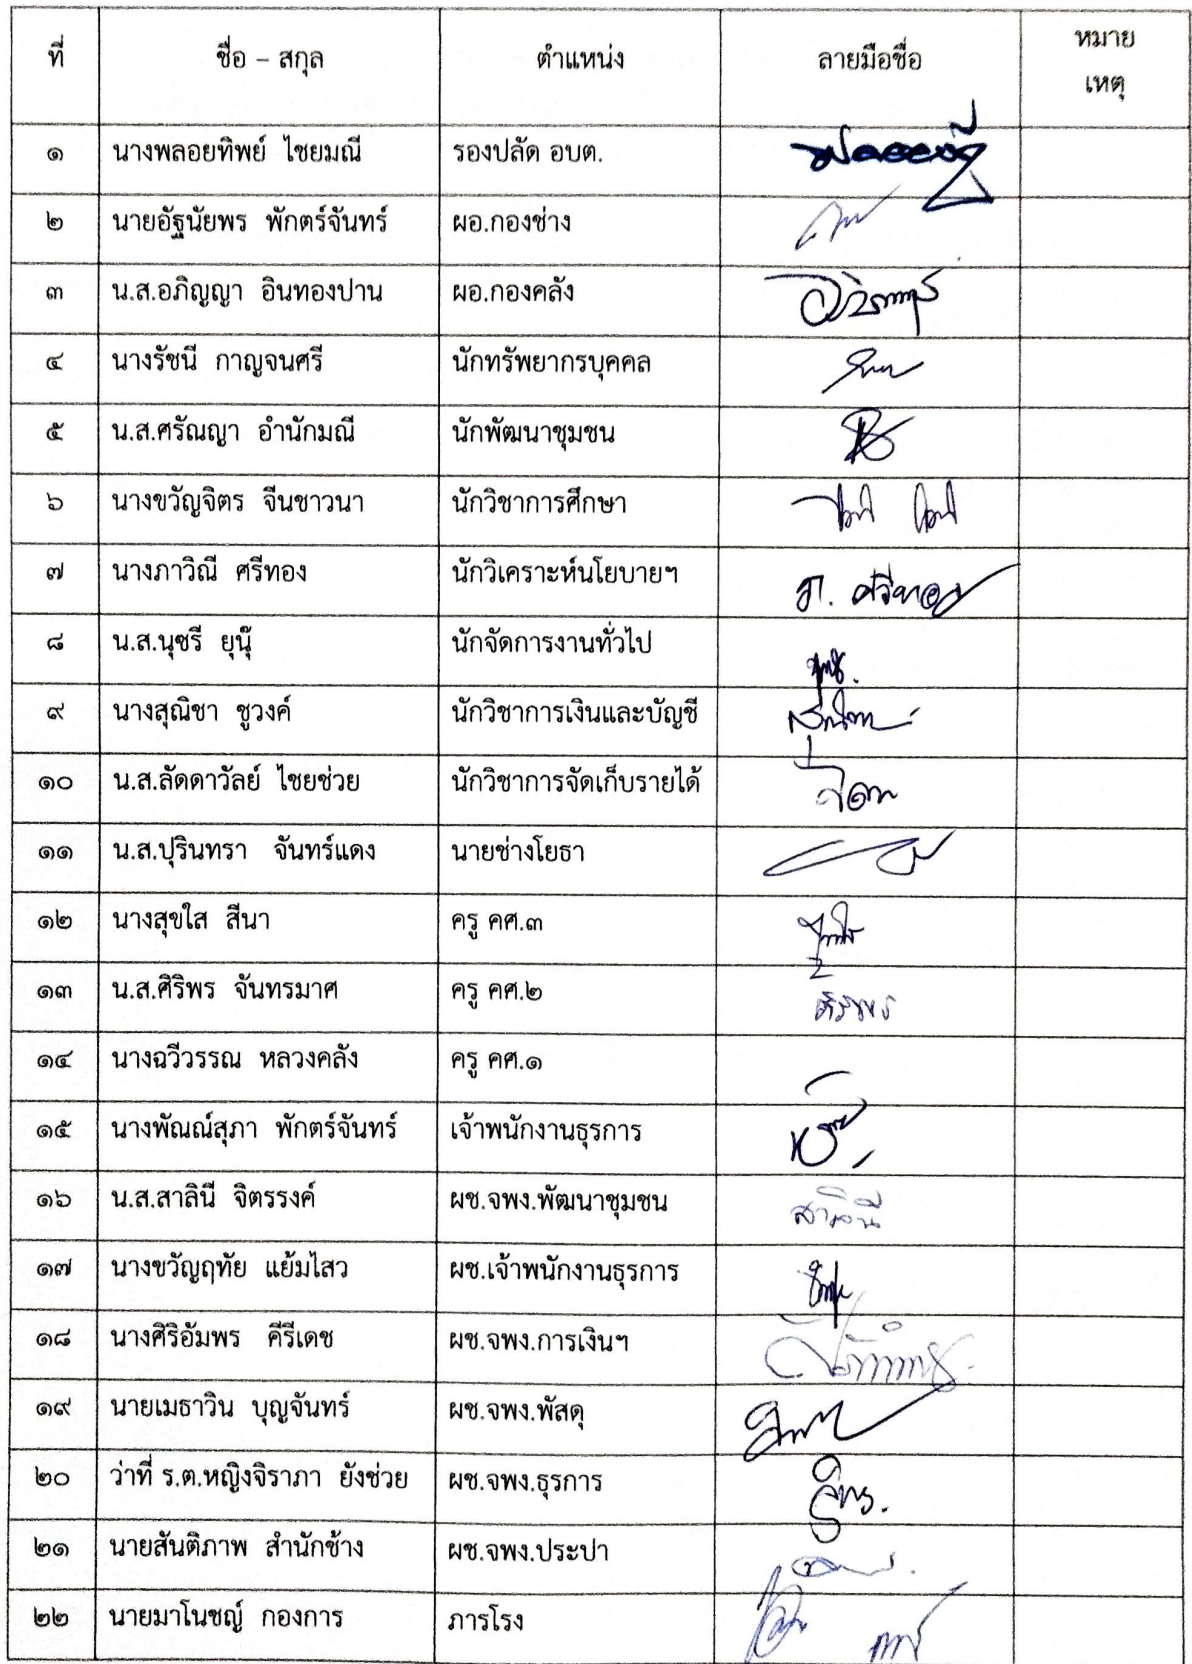 ที่ ชื่อ – สกุล ตำแหน่ง ลายมือชื่อ หมาย
เหตุ
๑ นางพลอยทิพย์ ไชยมณี รองปลัด อบต.
๒ นายอัฐนัยพร พักตร์จันทร์ ผอ.กองช่าง
๓ น.ส.อภิญญา อินทองปาน ผอ.กองคลัง
๔ นางรัชนี กาญจนศรี นักทรัพยากรบุคคล
๕ น.ส.ศรัณญา อำนักมณี นักพัฒนาชุมชน
๖ นางขวัญจิตร จีนชาวนา นักวิชาการศึกษา
๗ นางภาวิณี ศรีทอง นักวิเคราะห์นโยบายฯ ภ. ศรีทอง
๘ น.ส.นุซรี ยุนุ๊ นักจัดการงานทั่วไป
๙ นางสุณิชา ชูวงค์ นักวิชาการเงินและบัญชี
๑๐ น.ส.ลัดดาวัลย์ ไชยช่วย นักวิชาการจัดเก็บรายได้
๑๑ น.ส.ปุรินทรา จันทร์แดง นายช่างโยธา
๑๒ นางสุขใส สีนา ครู คศ.๓
๑๓ น.ส.ศิริพร จันทรมาศ ครู คศ.๒ ศิริพร
๑๔ นางฉวีวรรณ หลวงคลัง ครู คศ.๑
๑๕ นางพัณณ์สุภา พักตร์จันทร์ เจ้าพนักงานธุรการ
๑๖ น.ส.สาลินี จิตรรงค์ ผช.จพง.พัฒนาชุมชน สาลินี
๑๗ นางขวัญฤทัย แย้มไสว ผช.เจ้าพนักงานธุรการ
๑๘ นางศิริอัมพร คีรีเดช ผช.จพง.การเงินฯ
๑๙ นายเมธาวิน บุญจันทร์ ผช.จพง.พัสดุ
๒๐ ว่าที่ ร.ต.หญิงจิราภา ยังช่วย ผช.จพง.ธุรการ
๒๑ นายสันติภาพ สำนักช้าง ผช.จพง.ประปา
๒๒ นายมาโนชญ์ กองการ ภารโรง